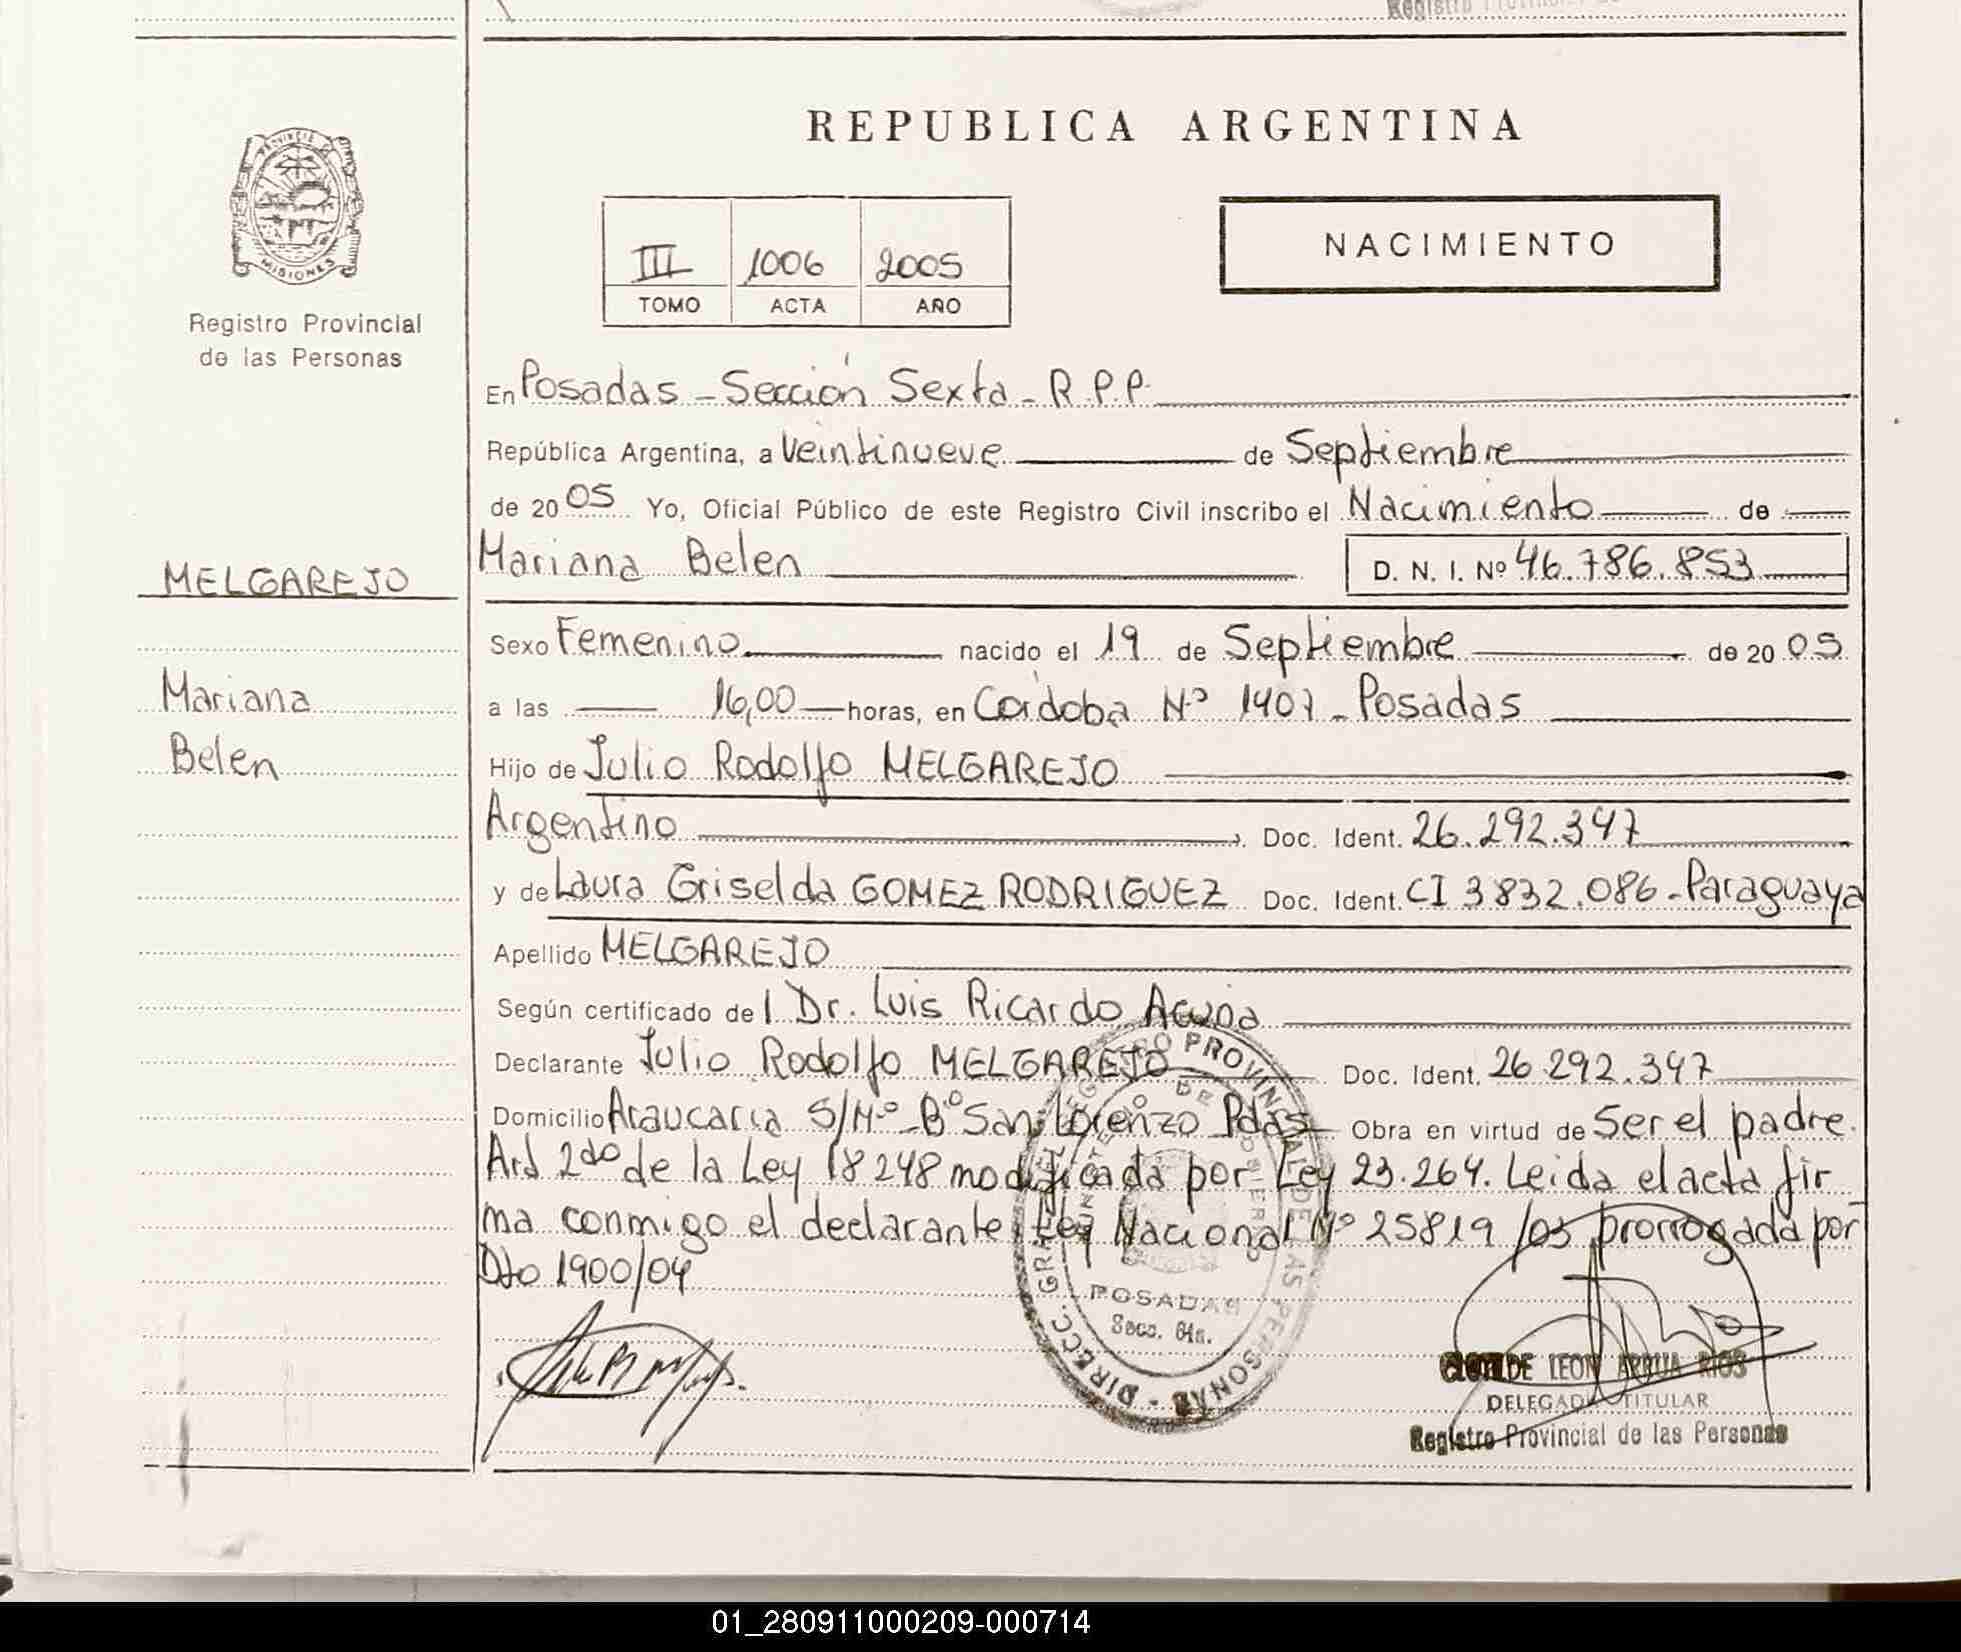 Registro
REPUBLICA ARGENTINA
PROVINCIA DE
MISIONES
Registro Provincial
de las Personas
III 1006 2005
TOMO ACTA AÑO
NACIMIENTO
En Posadas - Sección Sexta - R.P.P.
República Argentina, a Veintinueve de Septiembre
de 2005 Yo, Oficial Público de este Registro Civil inscribo el Nacimiento de
MELGAREJO
Mariana Belen D. N. I. Nº 46.786.853
Sexo Femenino nacido el 19 de Septiembre de 2005
Mariana
a las 16,00 horas, en Córdoba Nº 1407 - Posadas
Belen
Hijo de Julio Rodolfo MELGAREJO
Argentino Doc. Ident. 26.292.347
y de Laura Griselda GOMEZ RODRIGUEZ Doc. Ident. CI 3832.086 - Paraguaya
Apellido MELGAREJO
Según certificado del Dr. Luis Ricardo Acuña
Declarante Julio Rodolfo MELGAREJO Doc. Ident. 26.292.347
Domicilio Araucaria S/Nº - Bº San Lorenzo Pdas Obra en virtud de Ser el padre.
Art 2do de la Ley 18248 modificada por Ley 23.264. Leida el acta fir
ma conmigo el declarante Ley Nacional Nº 25819/03 prorrogada por
Dto 1900/04
DIRECC. GRAL. DEL REGISTRO PROVINCIAL DE LAS PERSONAS
MINISTERIO DE GOBIERNO
POSADAS
Secc. 6ta.
CLOTILDE LEON ARRUA RIOS
DELEGADA TITULAR
Registro Provincial de las Personas
01_280911000209-000714